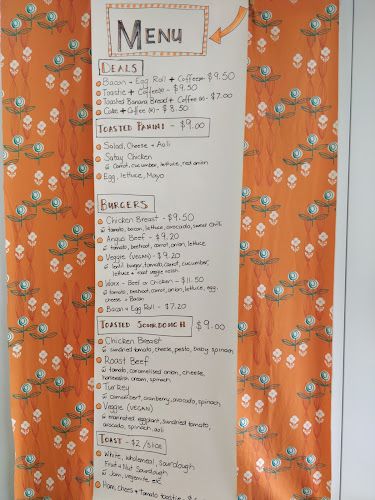 MENU
DEALS
Bacon - Egg Roll + Coffee(R) - $9.50
Toastie + Coffee(R) - $9.50
Toasted Banana Bread + Coffee (R) - $7.00
Cake + Coffee (R) - $8.50
TOASTED PANINI - $9.00
Salad, Cheese + Aoli
Satay Chicken
w carrot, cucumber, lettuce, red onion
Egg, lettuce, Mayo
BURGERS
Chicken Breast - $9.50
w tomato, bacon, lettuce, avocado, sweet chilli
Angus Beef - $9.20
w tomato, beetroot, carrot, onion, lettuce
Veggie (VEGAN) - $9.20
w lentil burger, tomato, carrot, cucumber,
lettuce + roast veggie relish
Worx - Beef or Chicken - $11.50
w tomato, beetroot, carrot, onion, lettuce, egg,
cheese + Bacon
Bacon + Egg Roll - $7.20
TOASTED SOURDOUGH $9.00
Chicken Breast
w sundried tomato, cheese, pesto, baby spinach
Roast Beef
w tomato, caramelised onion, cheese,
horseradish cream, spinach
Turkey
w camembert, cranberry, avocado, spinach
Veggie (VEGAN)
w marinated eggplant, sundried tomato,
avocado, spinach, aoli
TOAST - $2/SLICE
White, Wholemeal, Sourdough
Fruit + Nut Sourdough
w Jam, vegemite etc
Ham, Cheese + Tomato toastie